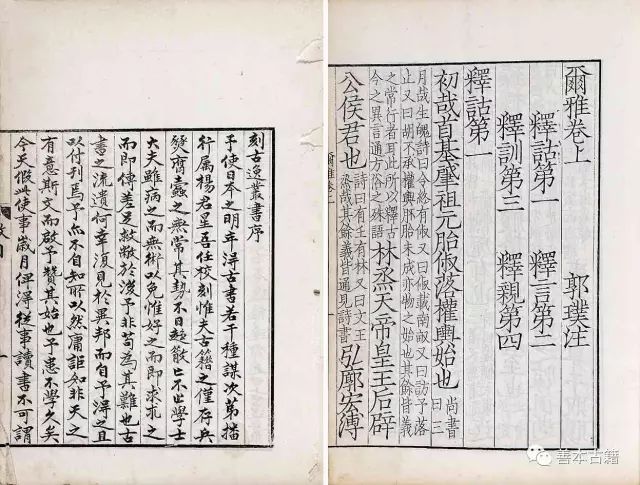 刻古逸叢書序
予使日本之明年得古書若干種謀次第播
行屬楊君星吾任校刻惟夫古籍之僅存兵
燹齊蠹之無常其勢不日趨散亡不止學士
大夫雖病之而無術以免惟好之而即求求之
而即傳差足救敝於後予非苟為其難也古
書之流遺何幸復見於異邦而自予得之且
以付刊焉予亦不自知所以然庸詎知非天之
有意斯文而啟予贊其始也予患不學久矣
今天假此使事歲月俾得從事讀書不可謂
爾雅卷上 郭璞注
釋詁第一 釋言第二
釋訓第三 釋親第四
釋詁第一
初哉首基肇祖元胎俶落權輿始也 尚書曰三
月哉生魄詩曰令終有俶又曰俶載南畝又曰訪予落
止又曰胡不承權輿胚胎未成亦物之始也其餘皆義
之常行者耳此所以釋古今之異言通方俗之殊語 林烝天帝皇王后辟
公侯君也 詩曰有壬有林又曰文王烝哉其餘義皆通見詩書 弘廓宏溥
爾雅卷上
善本古籍